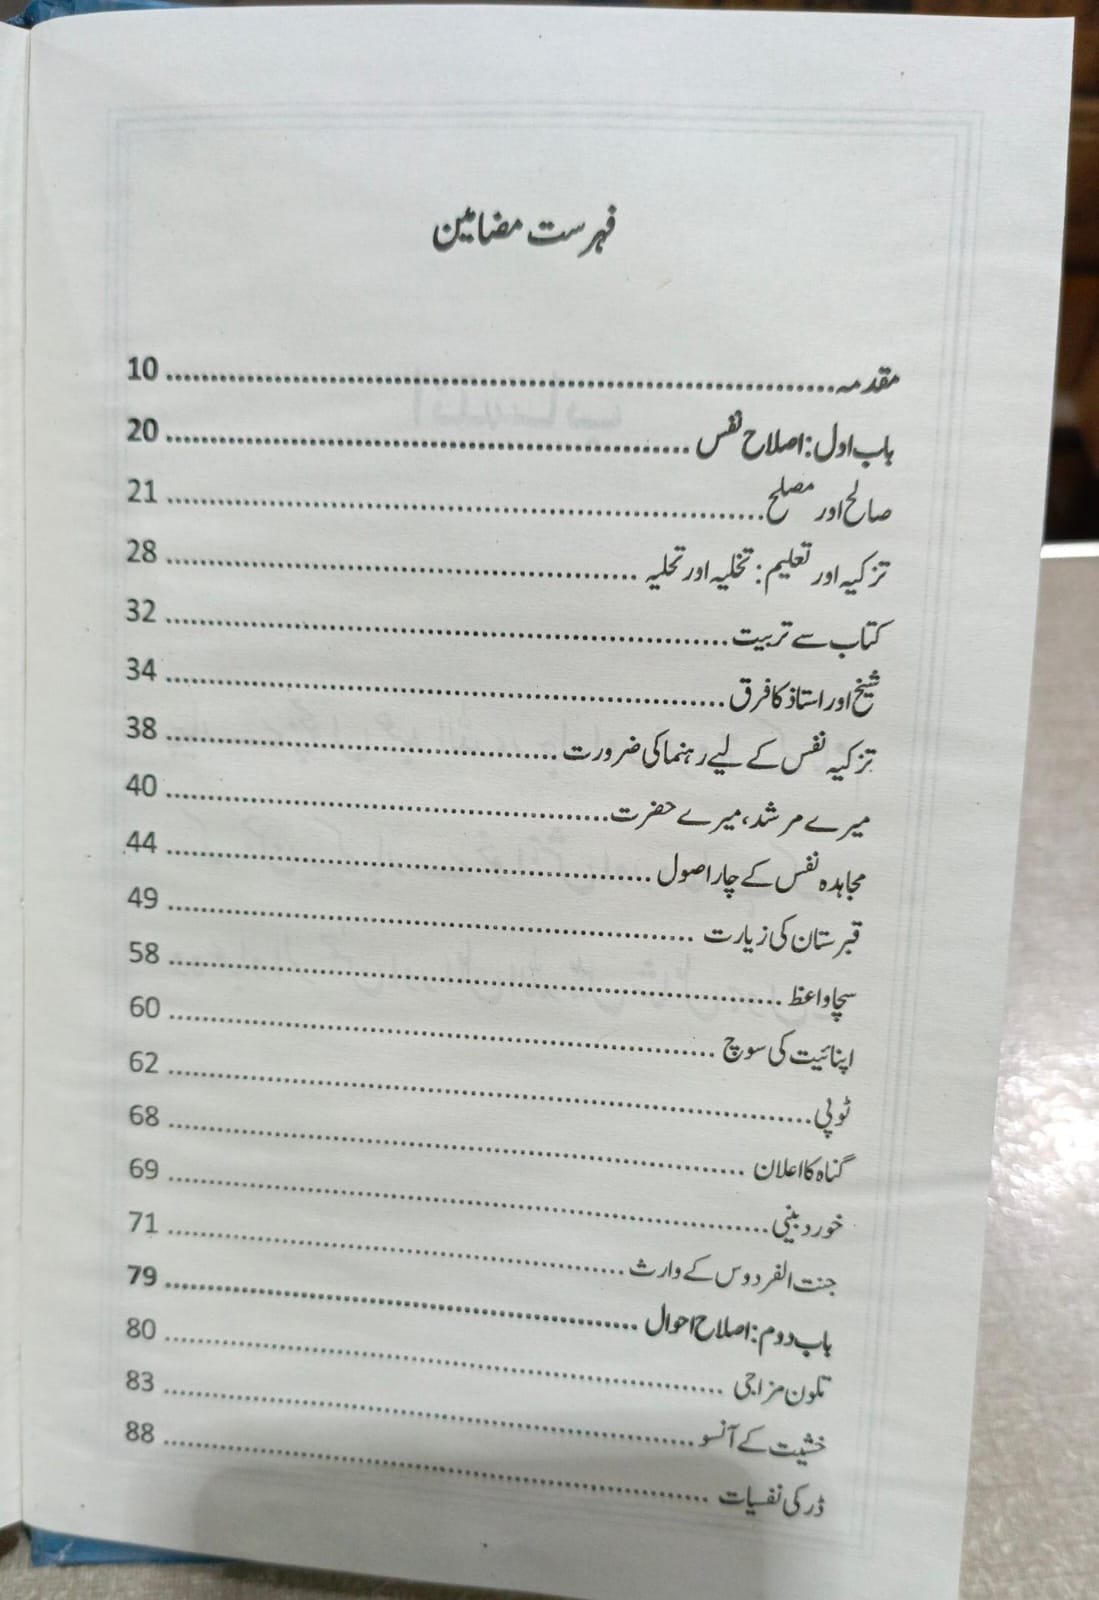 فہرست مضامین
مقدمہ .......... 10
باب اول: اصلاح نفس .......... 20
صالح اور مصلح .......... 21
تزکیہ اور تعلیم: تخلیہ اور تحلیہ .......... 28
کتاب سے تربیت .......... 32
شیخ اور استاذ کا فرق .......... 34
تزکیہ نفس کے لیے رہنما کی ضرورت .......... 38
میرے مرشد، میرے حضرت .......... 40
مجاہدہ نفس کے چار اصول .......... 44
قبرستان کی زیارت .......... 49
سچا واعظ .......... 58
اپنائیت کی سوچ .......... 60
ٹوپی .......... 62
گناہ کا اعلان .......... 68
خورد بینی .......... 69
جنت الفردوس کے وارث .......... 71
باب دوم: اصلاح احوال .......... 79
تلون مزاجی .......... 80
خشیت کے آنسو .......... 83
ڈر کی نفسیات .......... 88